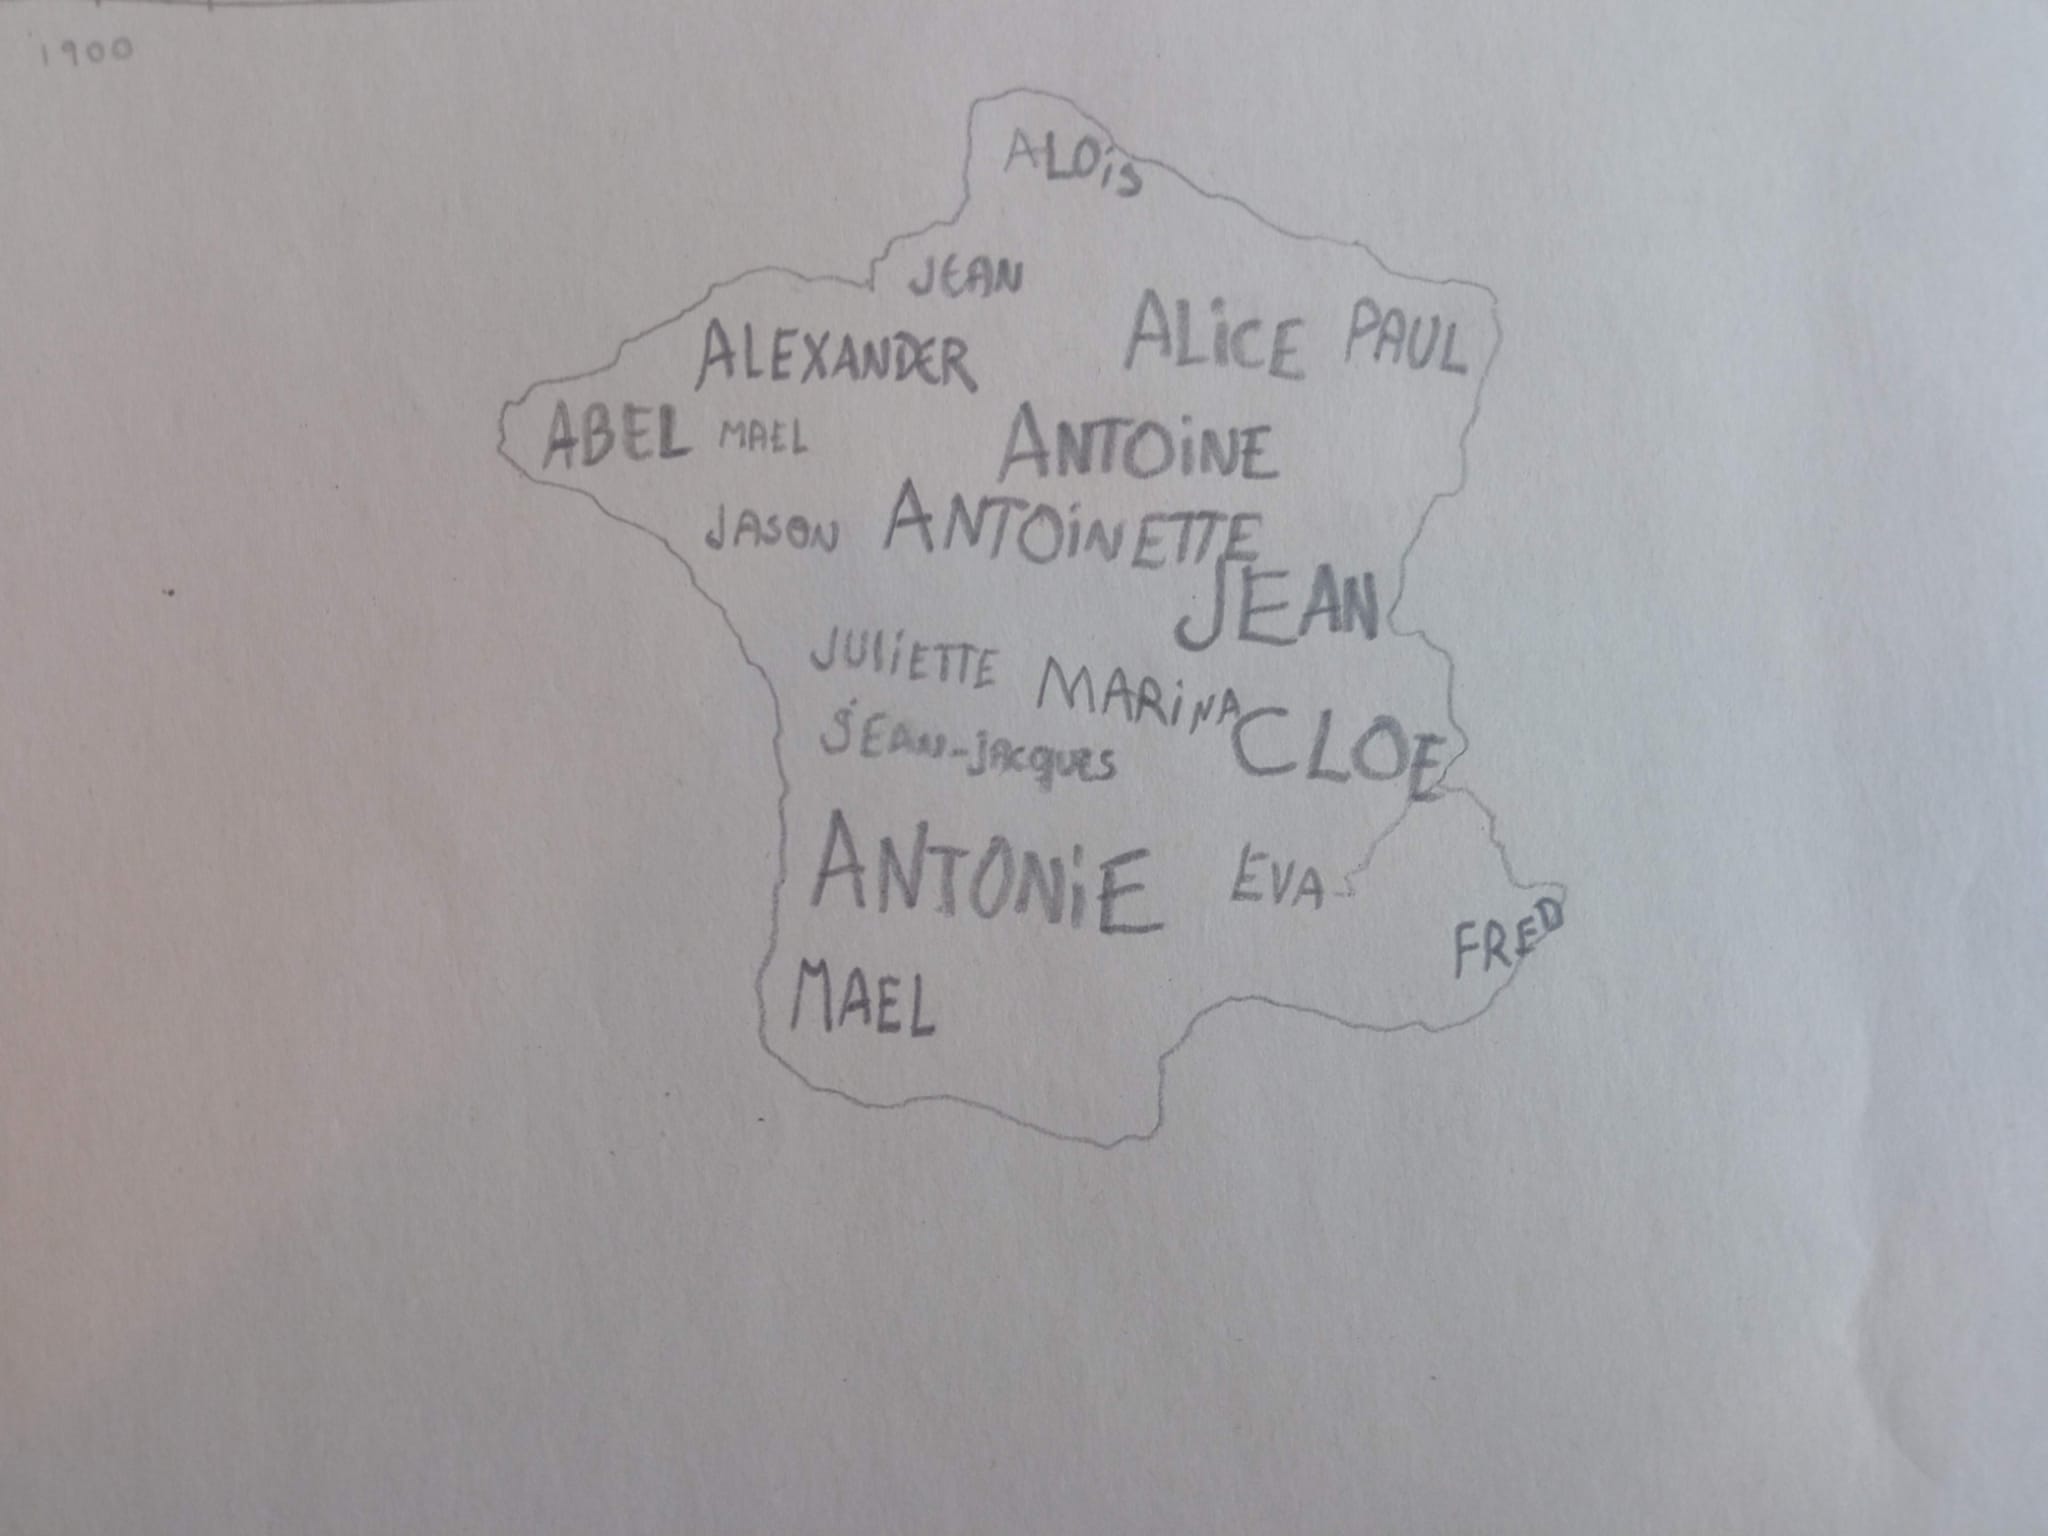 1900
ALOiS
JEAN
ALiCE PAUL
ALEXANDER
ABEL MAEL ANTOiNE
JASON ANTOiNETTE
JEAN
JULiETTE MARiNA
JEAN-JACQUES CLOE
ANTONiE EVA
FRED
MAEL